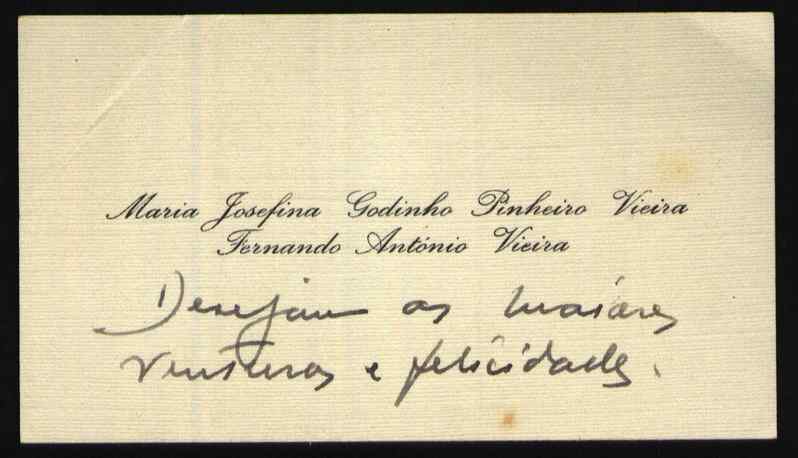 Maria Josefina Godinho Pinheiro Vieira
Fernando António Vieira
Desejam as maiores
venturas e felicidades.